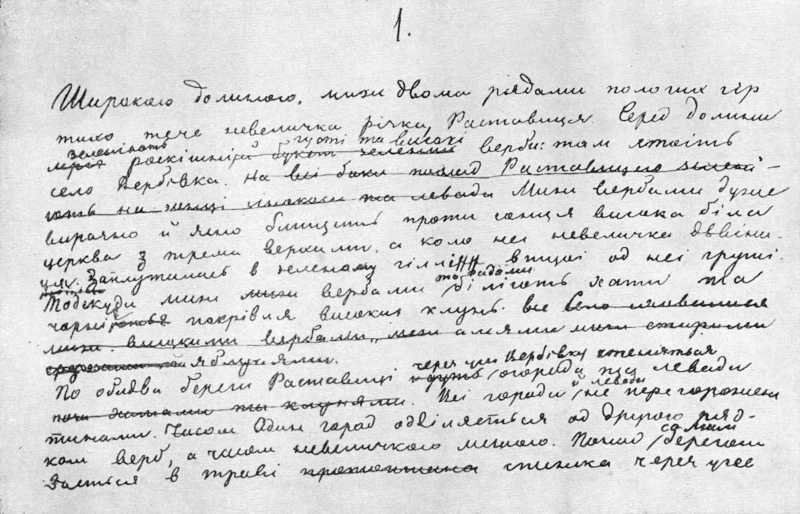 1.
Широкою долиною, мижи двома рядами пологих гір
тихо тече невеличка річка Раставиця. Серед долини
зеленіють густі та високі
розкішний букет зелених верби: там стоїть
село Вербівка. На всі боки понад Раставицею зелені-
ють на сонці та левади Мижи вербами дуже
виразно й ясно блищить проти сонця висока біла
церква з трьома верхами, а коло неї невеличка дзвіни-
ця заплуталась в зеленому гіллі од неї груші.
Подекуди мижи вербами та садами біліють хати та
чорніють покрівля високих клунь. Все село
мижи вербами, мижи старими
яблунями.
По обидва береги Раставиці через усю Вербівку стеляться
огороди та левади
та клунями. Цеї городи й левади не перегорожені
тинами. Часом Один город одділяється од другого ряд-
ком верб, а часом невеличкою межою. Понад самим берегом
в'ється в траві стежка через усе